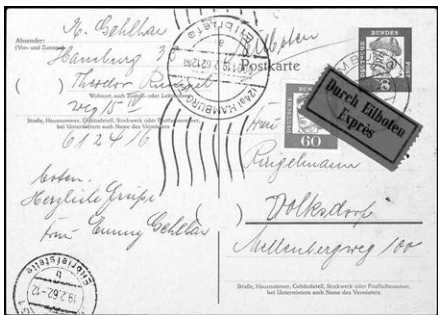 Absender:
(Vor- und Zuname)
K. Gehlhar
Hamburg 3
Theodor
Wohnort, auch Zustell- oder Leitpostamt
weg 15
Straße, Hausnummer, Gebäudeteil, Stockwerk oder Postfachnummer,
bei Untermietern auch Name des Vermieters
612416
boten.
Herzliche Grüße
Frau Emmy Gehlhar
Eilbriefstelle
b
19.2.62-12
Eilbriefstelle
a
19.2.62.12
(24a) HAMBURG
Eilboten
Postkarte
DEUTSCHE
BUNDES
POST
8
DEUTSCHE
60
Durch Eilboten
Exprès
Frau
Ringelmann
Volksdorf
Mellenbergweg 100
Straße, Hausnummer, Gebäudeteil, Stockwerk oder Postfachnummer,
bei Untermietern auch Name des Vermieters